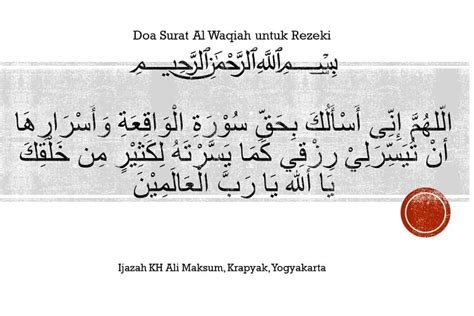 Doa Surat Al Waqiah untuk Rezeki
بِسْمِ اللَّهِ الرَّحْمَٰنِ الرَّحِيمِ
اللّهُمَّ إِنِّى أَسْأَلُكَ بِحَقِّ سُوْرَةِ الْوَاقِعَةِ وَأَسْرَارِهَا
أنْ تُيَسِّرَلِيْ رِزْقِي كَمَا يَسَّرْتَهُ لِكَثِيْرٍ مِن خَلْقِكَ
يَا اَلله يَا رَبَّ الْعَالَمِيْنَ
Ijazah KH Ali Maksum, Krapyak, Yogyakarta